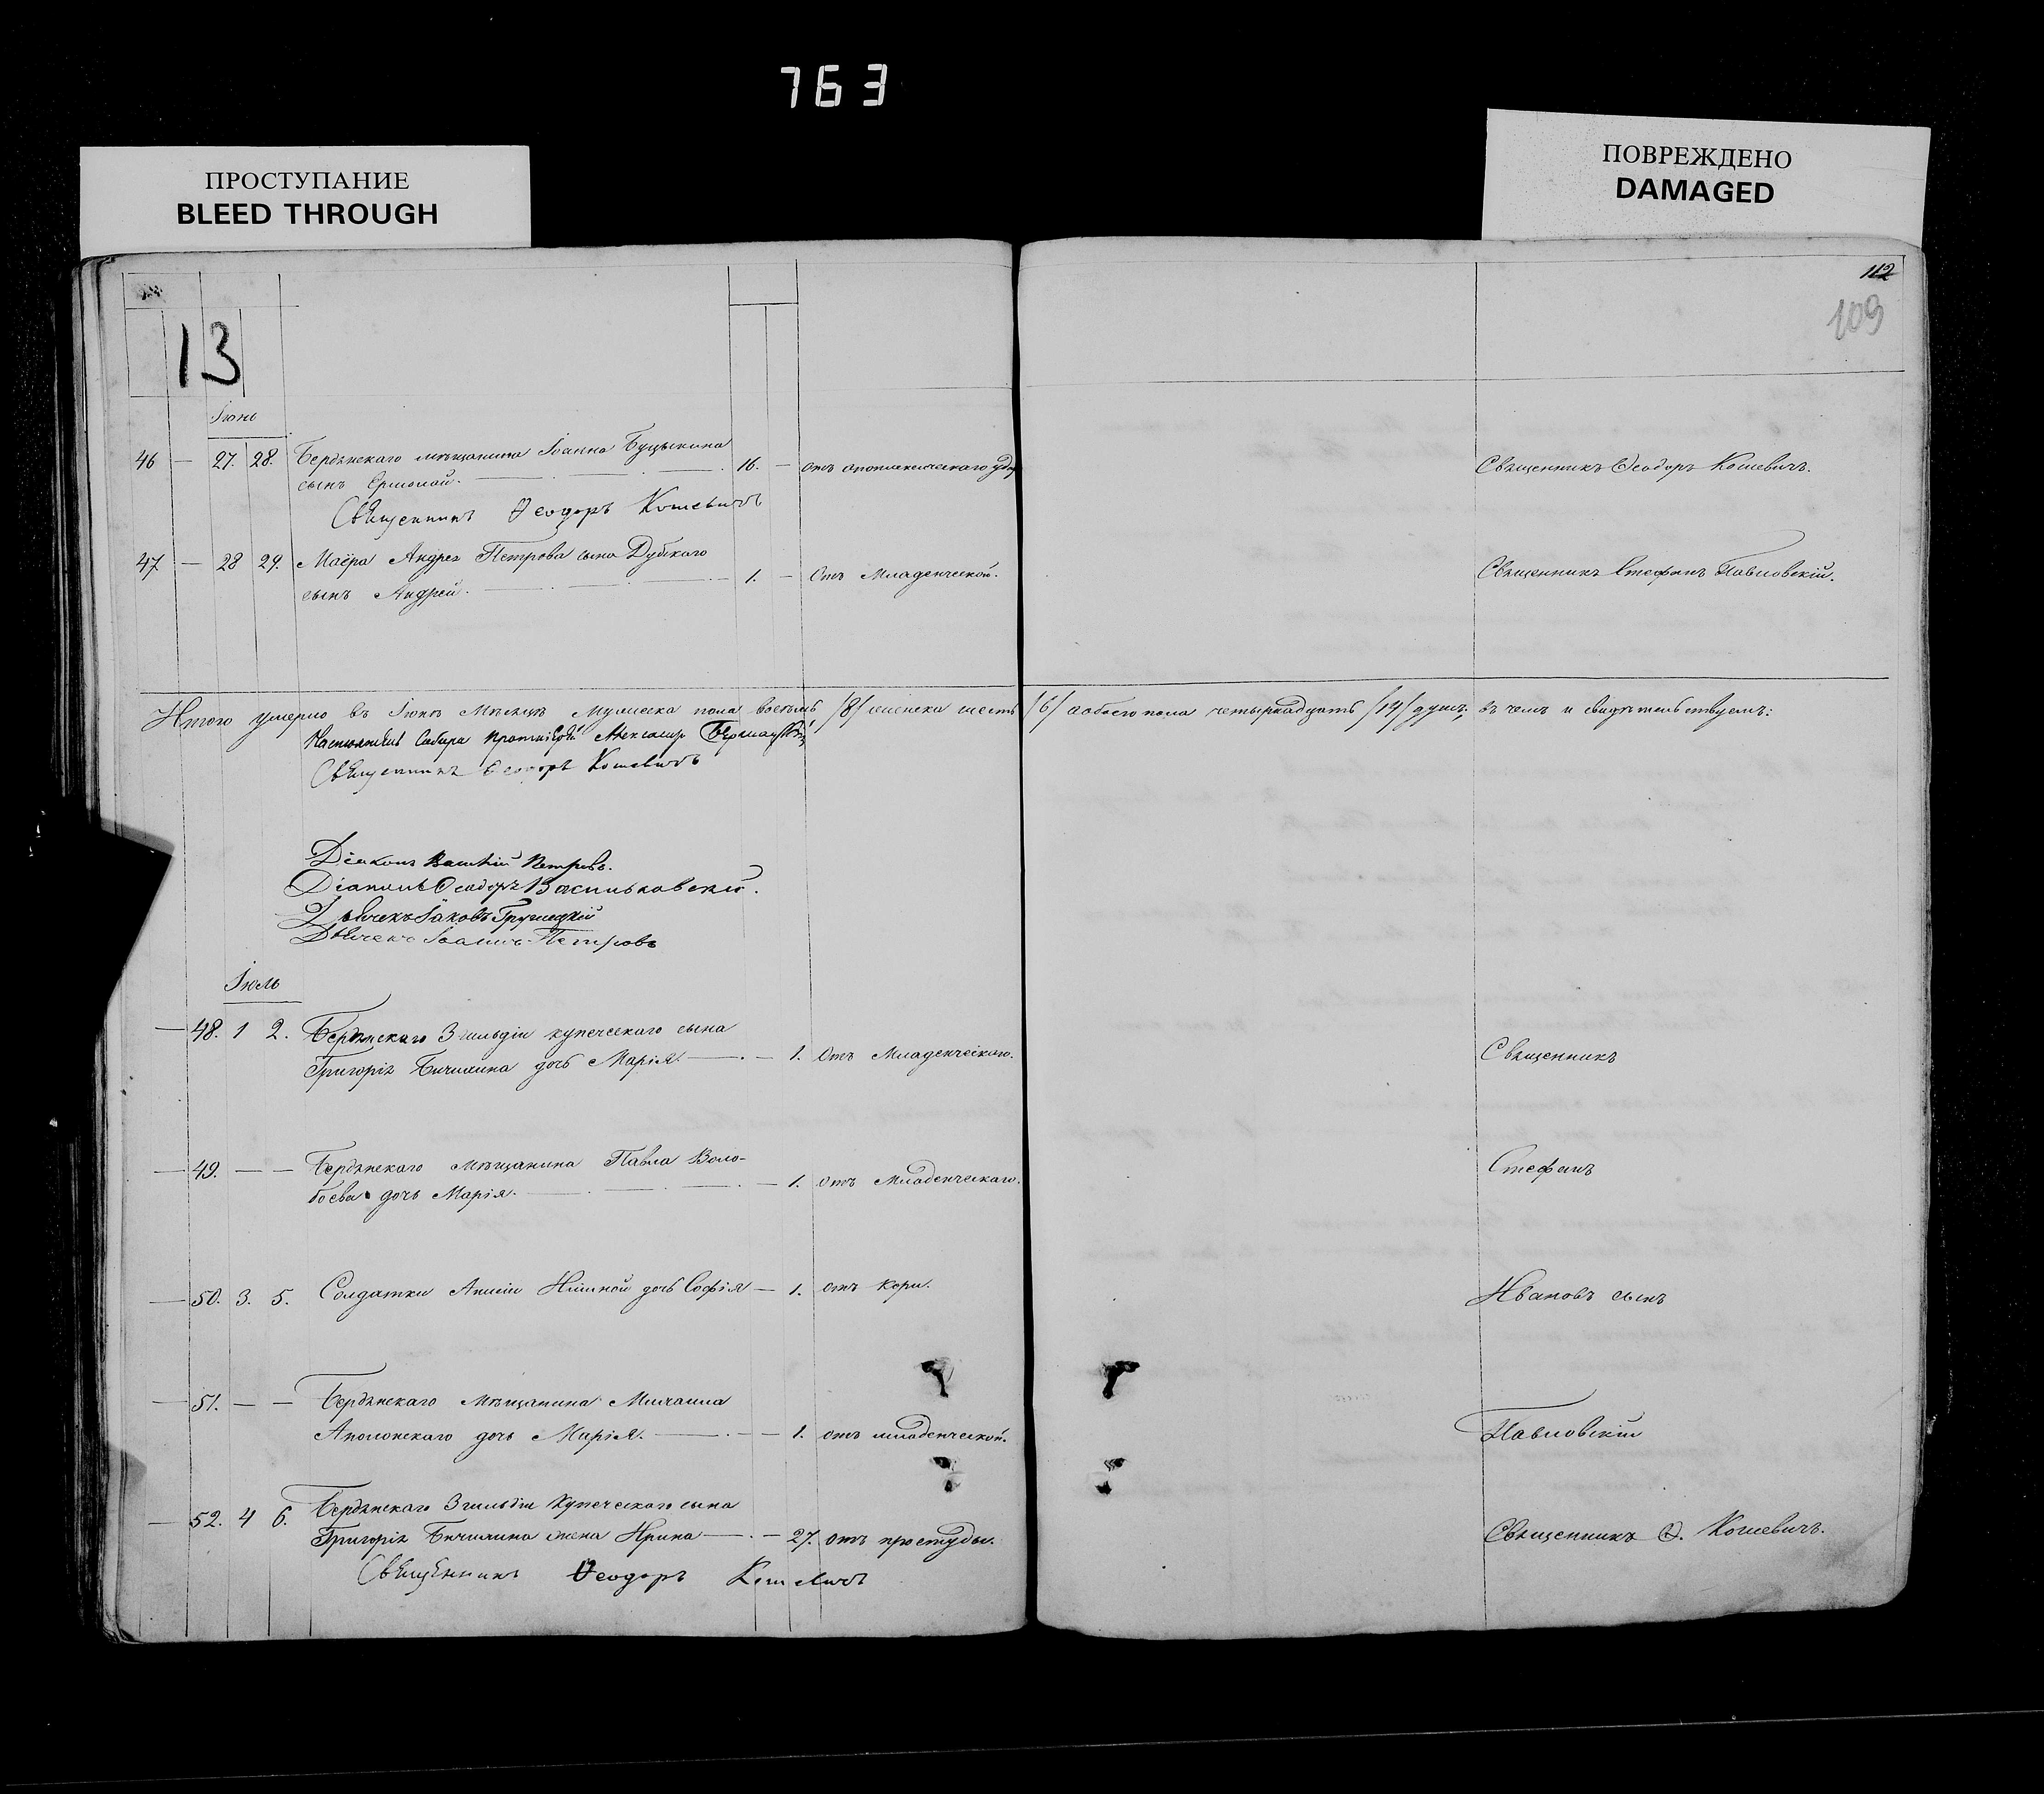 763
ПРОСТУПАНИЕ
BLEED THROUGH
ПОВРЕЖДЕНО
DAMAGED
112
109
13
Іюнь
46 — 27. 28. Бердянскаго мѣщанина Іоанна Буцыкина
сынъ Ермолай. 16. — отъ апоплексическаго удар Священникъ Ѳеодоръ Кошевичъ.
Священникъ Ѳеодоръ Кошевичъ
47 — 28 29. Маёра Андрея Петрова сына Дубскаго
сынъ Андрей. 1. — Отъ Младенческой. Священникъ Стефанъ Павловскій.
Итого умерло въ Іюнѣ Мѣсяцѣ Мужеска пола восемь /8/ женска шесть /6/ аобоего пола четырнадцать /14/ душъ; въ чемъ и свидѣтельствуемъ:
Настоятель Собора Протоіерей Александр
Священникъ Ѳеодоръ Кошевичъ
Діаконъ Василій Петровъ.
Діаконъ Ѳеодоръ Васильковскій.
Дьячекъ Іаковъ
Дьячекъ Іоаннъ Петровъ
Іюль
— 48. 1 2. Бердянскаго 3 гильдіи купеческаго сына
Григорія Бичихина дочь Марія. — 1. Отъ Младенческаго. Священникъ
— 49. — — Бердянскаго мѣщанина Павла Воло-
боева дочь Марія. — 1. отъ Младенческаго. Стефанъ
— 50. 3. 5. Солдатки дочь Софія — 1. отъ кори. Ивановъ сынъ
— 51. — — Бердянскаго мѣщанина Михаила
Аполонскаго дочь Марія. — 1. отъ младенческой. Павловскій
— 52. 4 6. Бердянскаго 3 гильдіи Купеческаго сына
Григорія Бичихина жена Ирина — 27. отъ простуды. Священникъ Ѳ. Кошевичъ.
Священникъ Ѳеодоръ Кошевичъ